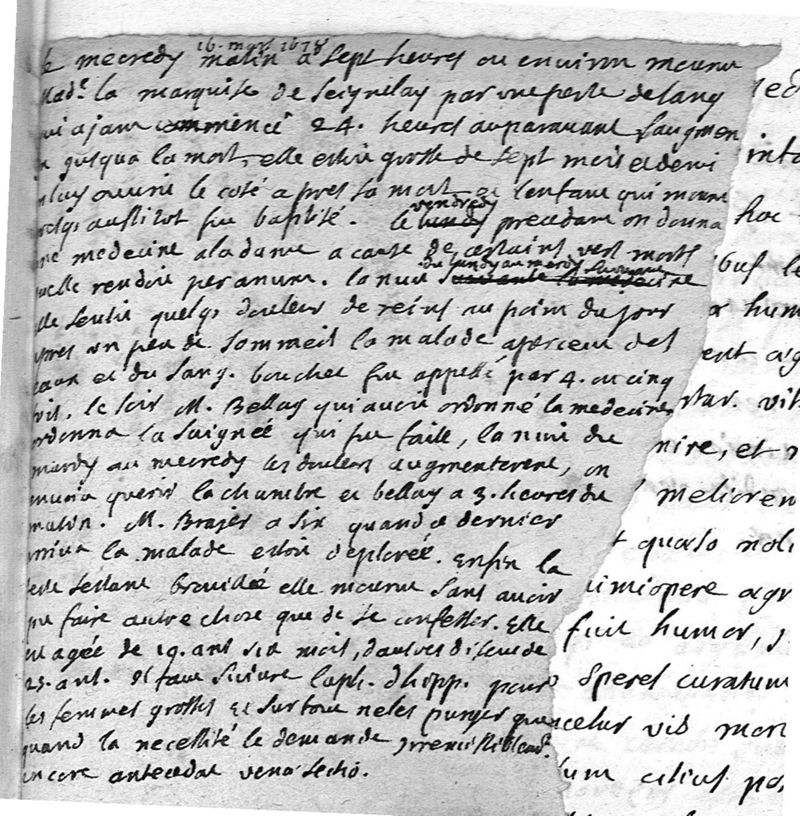 16. mars 1678
le mecredy matin a sept heures ou environ mourut
Mad.e la marquise de Seignelay par une perte de sang
qui ajant commencé 24. heures auparavant s'augmen
ta jusqua la mort, elle estoit grosse de sept mois et demi
on luy ouvrit le coté apres sa mort et lenfant qui mourut
presqs aussitost fut baptisé. le lundy vendredy precedant on donna
une medecine a la dame a cause de certains vers morts
quelle rendoit per anum. la nuit suivante la medecine du lundy au mardy suivant
elle sentit quelqs douleurs de reins au point du jour
apres un peu de sommeil la malade aperceut des
eaux et du sang. bouchet fut appellé par 4. ou cinq
fois. le soir M. Bellay qui avoit ordonné la medecine,
ordonna la saignée qui fut faite, la nuit du
mardy au mecredy les douleurs augmenterent, on
envoia querir la chambre et bellay a 3. heures du
matin. M. Brajer a six quand ce dernier
arriva la malade estoit deplorée. Enfin la
teste sestant brouillée elle mourut sans avoir
pu faire autre chose que de se confesser. Elle
est agée de 19. ans six mois, dautres disent de
23. ans. Il faut suivre laph. dhipp. pour
les femmes grosses et surtout ne les purger que
quand la necessité le demande
encore antecedat venae sectio.
hoc
hum
nire, et
meliorem
quarto noli
nimiopere
fuit humor,
Speres curatum
vis
citius